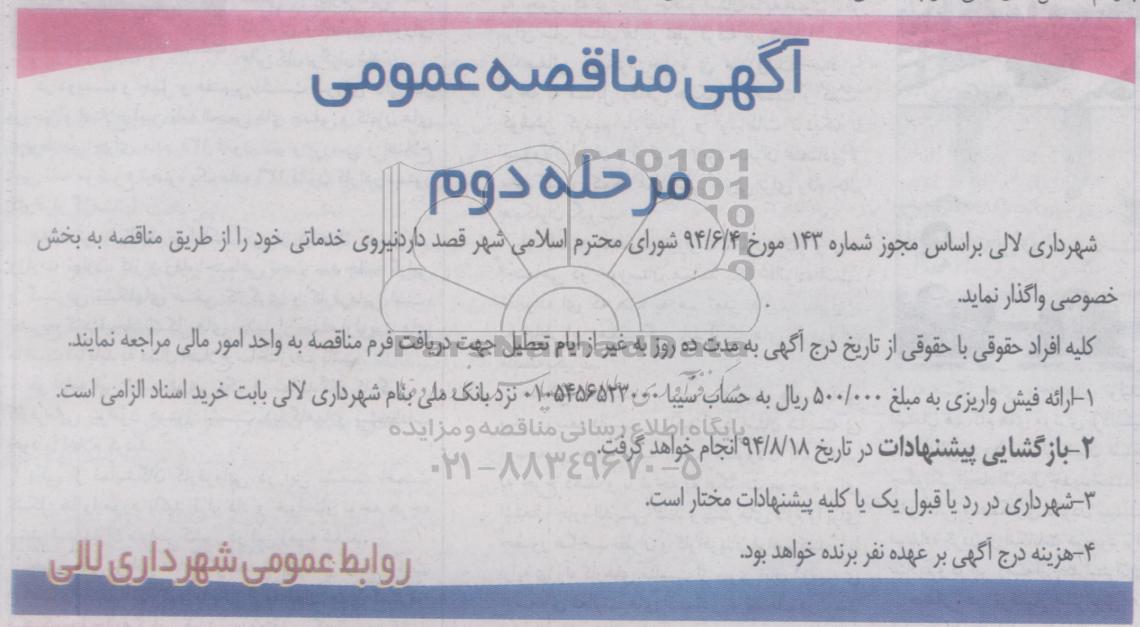 آگهی مناقصه عمومی
مرحله دوم
شهرداری لالی براساس مجوز شماره ۱۴۳ مورخ ۹۴/۶/۴ شورای محترم اسلامی شهر قصد داردنیروی خدماتی خود را از طریق مناقصه به بخش
خصوصی واگذار نماید.
کلیه افراد حقوقی با حقوقی از تاریخ درج آگهی به مدت ده روز به غیر از ایام تعطیل جهت دریافت فرم مناقصه به واحد امور مالی مراجعه نمایند.
۱-ارائه فیش واریزی به مبلغ ۵۰۰/۰۰۰ ریال به حساب سیبا نزد بانک ملی بنام شهرداری لالی بابت خرید اسناد الزامی است.
پایگاه اطلاع رسانی مناقصه و مزایده
۲-بازگشایی پیشنهادات در تاریخ ۹۴/۸/۱۸ انجام خواهد گرفت.
۰۲۱-۸۸۳۴۹۶۷۰-۵
۳-شهرداری در رد یا قبول یک یا کلیه پیشنهادات مختار است.
۴-هزینه درج آگهی بر عهده نفر برنده خواهد بود.
روابط عمومی شهرداری لالی